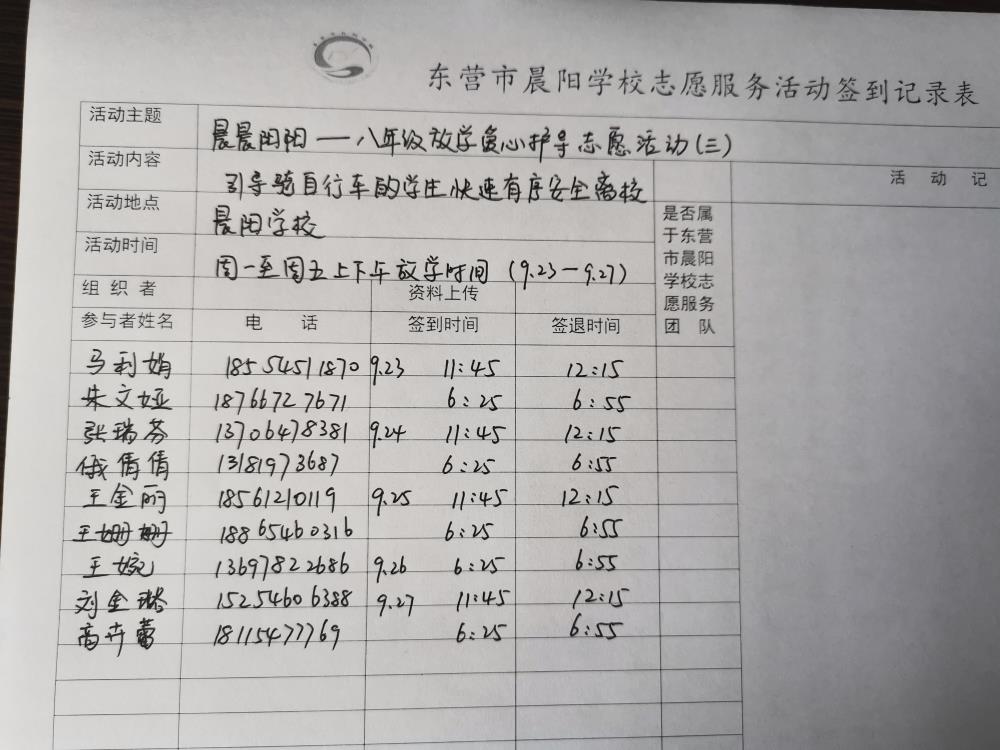 东营市晨阳学校志愿服务活动签到记录表
活动主题 晨晨阳阳——八年级放学爱心护导志愿活动(三)
活动内容 引导骑自行车的学生快速有序安全离校
活动地点 晨阳学校
活动时间 周一至周五上下午放学时间(9.23—9.27)
活 动 记
是否属
于东营
市晨阳
学校志
愿服务
团 队
组 织 者 资料上传
参与者姓名 电 话 签到时间 签退时间
马利娟 18554511870 9.23 11:45 12:15
朱文娅 18766727671 6:25 6:55
张瑞芬 13706478381 9.24 11:45 12:15
俄倩倩 13181973687 6:25 6:55
王金丽 18561210119 9.25 11:45 12:15
王姗姗 18865460316 6:25 6:55
王婉 13697822686 9.26 6:25 6:55
刘金 15254606388 9.27 11:45 12:15
高卉蕾 18115477769 6:25 6:55